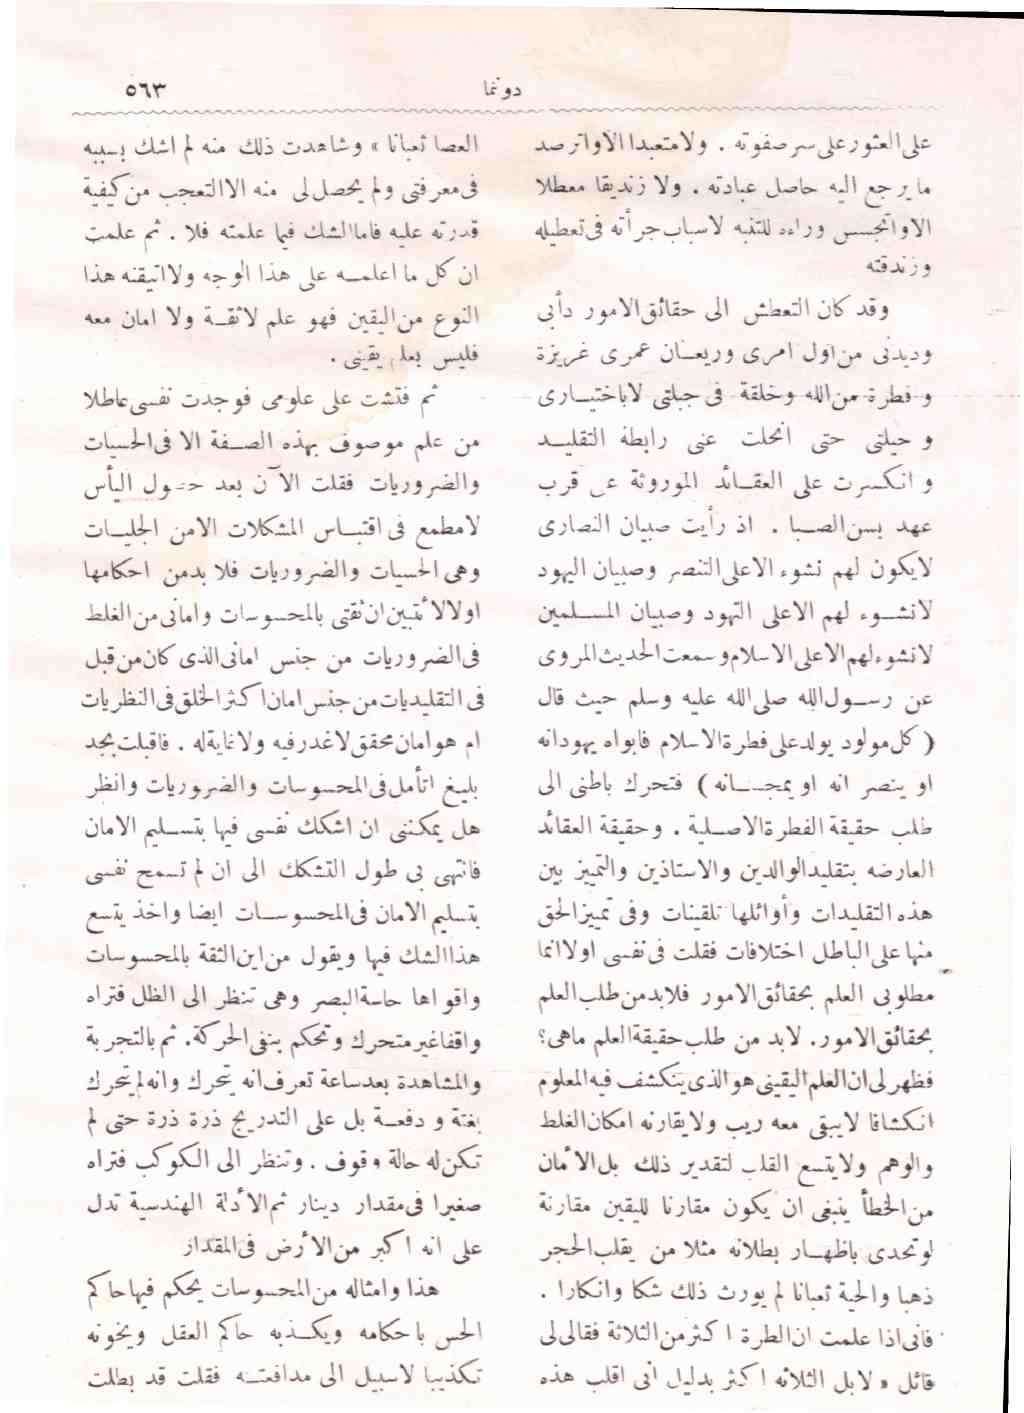 دونما
٥٦٣
على العثور على سر صفوته . ولا متعبدا الا واترصد
ما يرجع اليه حاصل عبادته . ولا زنديقا معطلا
الا واتجسس وراءه للتنبه لاسباب جرأته فى تعطيله
وزندقته
وقد كان التعطش الى حقائق الامور دأبى
وديدنى من اول امرى وريعـان عمرى غريزة
وفطرة من الله وخلقة فى جبلتى لا باختيـارى
وحيلتى حتى انحلت عنى رابطة التقليـد
وانكسرت على العقـائد الموروثة على قرب
عهد بسن الصـبا . اذ رأيت صبيان النصارى
لا يكون لهم نشوء الا على التنصر وصبيان اليهود
لا نشـوء لهم الا على التهود وصبيان المسـلمين
لا نشوء لهم الا على الاسلام وسمعت الحديث المروى
عن رسـول الله صلى الله عليه وسلم حيث قال
( كل مولود يولد على فطرة الاسلام فابواه يهودانه
او ينصر انه او يمجـسانه ) فتحرك باطنى الى
طلب حقيقة الفطرة الاصـلية . وحقيقة العقائد
العارضه بتقليد الوالدين والاستاذين والتمييز بين
هذه التقليدات وأوائلها تلقينات وفى تمييز الحق
منها على الباطل اختلافات فقلت فى نفسى اولا انما
مطلوبى العلم بحقائق الامور فلابد من طلب العلم
بحقائق الامور. لابد من طلب حقيقة العلم ماهى؟
فظهر لى ان العلم اليقينى هو الذى ينكشف فيه المعلوم
انكشافا لا يبقى معه ريب ولا يقارنه امكان الغلط
والوهم ولا يتسع القلب لتقدير ذلك بل الأمان
من الخطأ ينبغى ان يكون مقارنا لليقين مقارنة
لو تحدى باظهـار بطلانه مثلا من يقلب الحجر
ذهبا والحية ثعبانا لم يورث ذلك شكا وانكارا .
فانى اذا علمت ان الطرة اكثر من الثلاثة فقالى لى
قائل « لا بل الثلاثه اكثر بدليل انى اقلب هذه
العصا ثعبانا » وشاهدت ذلك منه لم اشك بسببه
فى معرفتى ولم يحصل لى منه الا التعجب من كيفية
قدرته عليه فاما الشك فيما علمته فلا . ثم علمت
ان كل ما اعلمـه على هذا الوجه ولا اتيقنه هذا
النوع من اليقين فهو علم لا ثقـة ولا امان معه
فليس بعلم يقينى .
ثم فتشت على علومى فوجدت نفسى عاطلا
من علم موصوف بهذه الصـفة الا فى الحسيات
والضروريات فقلت الآن بعد حصول اليأس
لا مطمع فى اقتبـاس المشكلات الا من الجليـات
وهى الحسيات والضروريات فلا بد من احكامها
اولا لأتبين ان ثقتى بالمحسوسات وامانى من الغلط
فى الضروريات من جنس امانى الذى كان من قبل
فى التقليديات من جنس امان اكثر الخلق فى النظريات
ام هو امان محقق لا غدر فيه ولا غاية له . فاقبلت بجد
بليغ اتأمل فى المحسوسات والضروريات وانظر
هل يمكننى ان اشكك نفسى فيها بتسـليم الامان
فانتهى بى طول التشكك الى ان لم تسمح نفسى
بتسليم الامان فى المحسوسـات ايضا واخذ يتسع
هذا الشك فيها ويقول من اين الثقة بالمحسوسات
واقواها حاسة البصر وهى تنظر الى الظل فتراه
واقفا غير متحرك وتحكم بنفى الحركة. ثم بالتجربة
والمشاهدة بعد ساعة تعرف انه يتحرك وانه لم يتحرك
بغتة و دفعـة بل على التدريج ذرة ذرة حتى لم
تكن له حالة وقوف . وتنظر الى الكوكب فتراه
صغيرا فى مقدار دينار ثم الأدلة الهندسية تدل
على انه اكبر من الأرض فى المقدار
هذا وامثاله من المحسوسات يحكم فيها حاكم
الحس باحكامه ويكـذبه حاكم العقل ويخونه
تكذيبا لا سبيل الى مدافعتـه فقلت قد بطلت